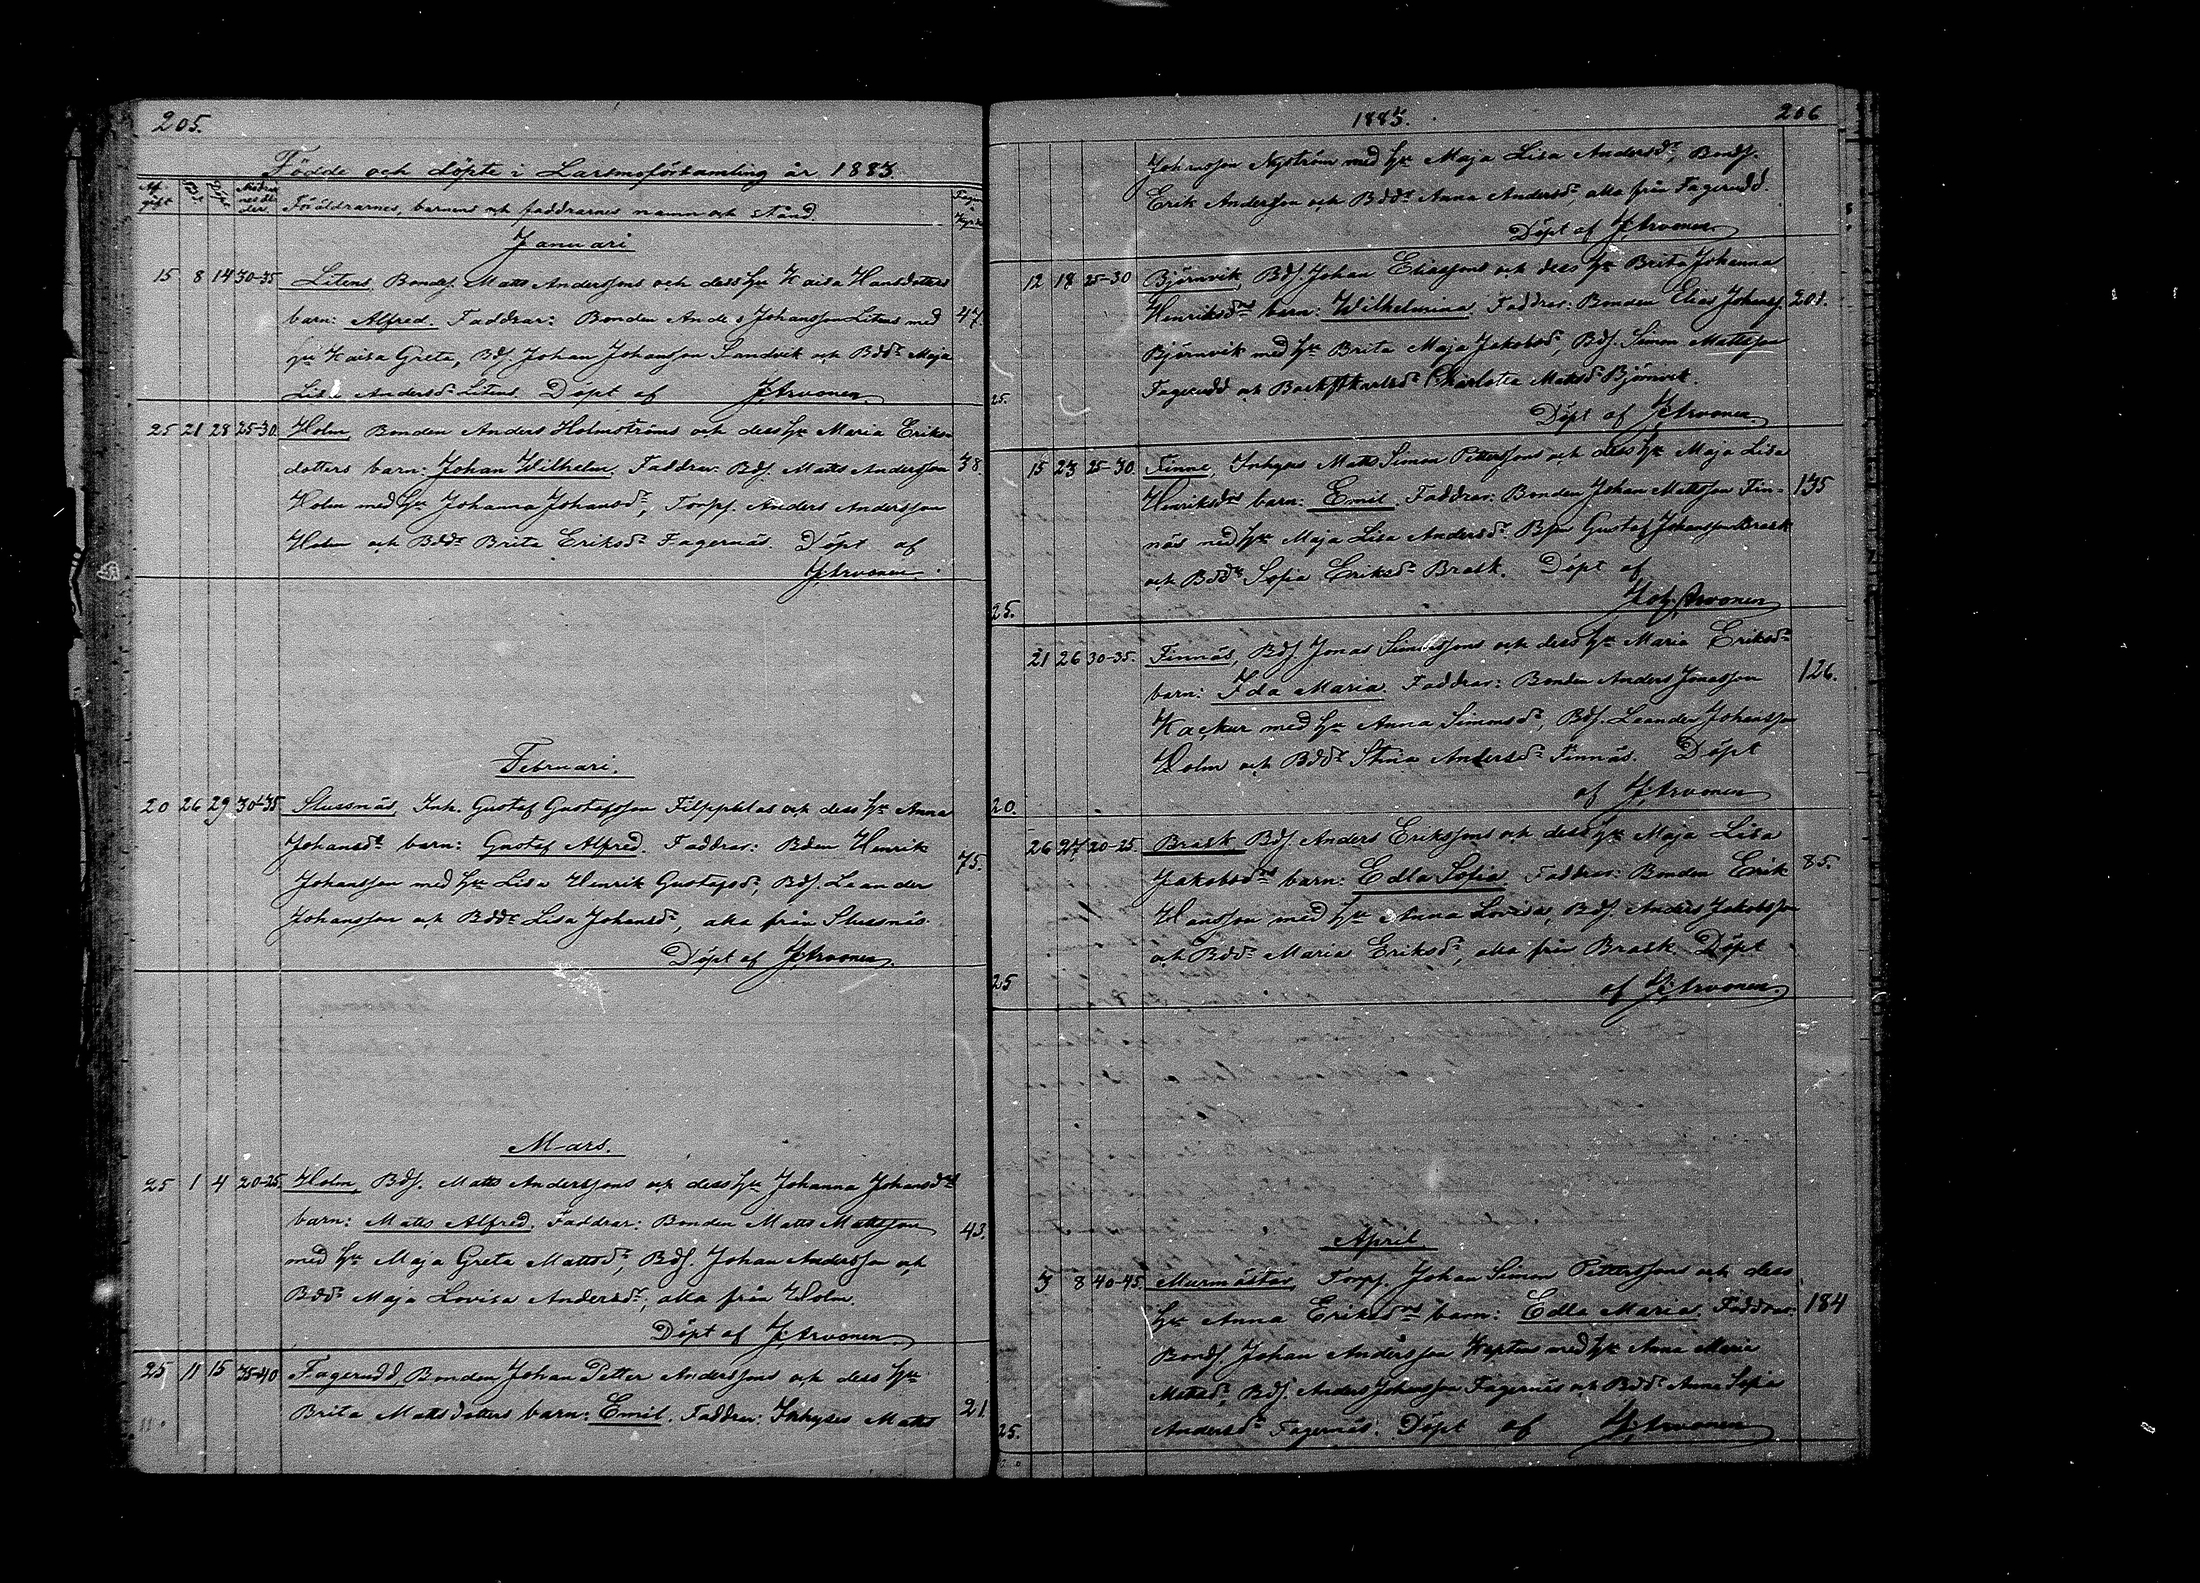 205.
Födde och döpte i Larsmo församling år 1883
Föräldrarnes, barnens och faddrarnes namn och stånd.
Januari
15 8 14 30-35 Litens, Bondes. Matts Anderssons och dess hu Kaisa Hansdotters
barn: Alfred. Faddrar: Bonden Anders Johansson Litens med 47.
hu Kaisa Greta, Bds. Johan Johansson Sandvik och Bddr Maja
Lisa Andersdr Litens. Döpt af J. Arvonen.
25 21 28 25-30. Holm, Bonden Anders Holmströms och dess hu Maria Eriks-
dotters barn: Johan Wilhelm. Faddrar: Bds. Matts Andersson 38.
Holm med hu Johanna Johansdr, Torps. Anders Andersson
Holm och Bddr Brita Eriksdr Fagernäs. Döpt af
J. Arvonen.
Februari.
20 26 29 30-35 Slussnäs, Inh. Gustaf Gustafsson Filppulas och dess hu Anna
Johansdr barn: Gustaf Alfred. Faddrar: Bden Henrik
Johansson med hu Lisa Henrik Gustafsd, Bds. Leander 75.
Johansson och Bddr Lisa Johansdr, alla från Slussnäs.
Döpt af J. Arvonen.
Mars.
25 1 4 20-25. Holm, Bds. Matts Anderssons och dess hu Johanna Johansdrs
barn: Matts Alfred. Faddrar: Bonden Matts Mattsson 43.
med hu Maja Greta Mattsdr, Bds. Johan Andersson och
Bddr Maja Lovisa Andersdr, alla från Holm.
Döpt af J. Arvonen.
25 11 15 35-40 Fagerudd, Bonden Johan Petter Anderssons och dess hu
Brita Mattsdotters barn: Emil. Faddrar: Inhyses Matts 21
1885. 206
Johansson Nyström med hu Maja Lisa Andersdr, Bonds.
Erik Andersson och Bddr Anna Andersdr, alla från Fagerudd.
Döpt af J. Arvonen.
12 18 25-30 Björnvik, Bds. Johan Eliassons och dess hu Brita Johanna
Henriksdrs barn: Wilhelmina. Faddrar: Bonden Elias Johanss. 201.
Björnvik med hu Brita Maja Jakobsdr, Bds. Simon Mattsson
25. Fagerudd och Charlotta Mattsdr Björnvik.
Döpt af J. Arvonen.
15 23 25-30. Finne, Inhyses Matts Simon Petterssons och dess hu Maja Lisa
Henriksdrs barn: Emil. Faddrar: Bonden Johan Mattsson Fin- 135
näs med hu Maja Lisa Andersdr. Bson Gustaf Johansson Brask
och Bddr Sofia Eriksdr Brask. Döpt af
25. Joh. Arvonen
21 26 30-35. Finnäs, Bds. Jonas Simonssons och dess hu Maria Eriksdr
barn: Ida Maria. Faddrar: Bonden Anders Jonasson 126.
Kackur med hu Anna Simonsdr, Bds. Leander Johansson
Holm och Bddr Stina Andersdr Finnäs. Döpt
20. af J. Arvonen
26 27 20-25. Brask, Bds. Anders Erikssons och dess hu Maja Lisa
Jakobsdrs barn: Edla Sofia. Faddrar: Bonden Erik 85.
Hansson med hu Anna Lovisa, Bds. Anders Jakobsson
och Bddr Maria Eriksdr, alla från Brask. Döpt
25 af J. Arvonen.
April.
3 8 40-45. Murmästar, Torps. Johan Simon Petterssons och dess
hu Anna Eriksdrs barn: Edla Maria. Faddrar: 184
Bonds. Johan Andersson med hu Anna Maria
Mattsdr, Bds. Anders Johansson Fagernäs och Bddr Anna Sofia
25. Andersdr Fagernäs. Döpt af J. Arvonen